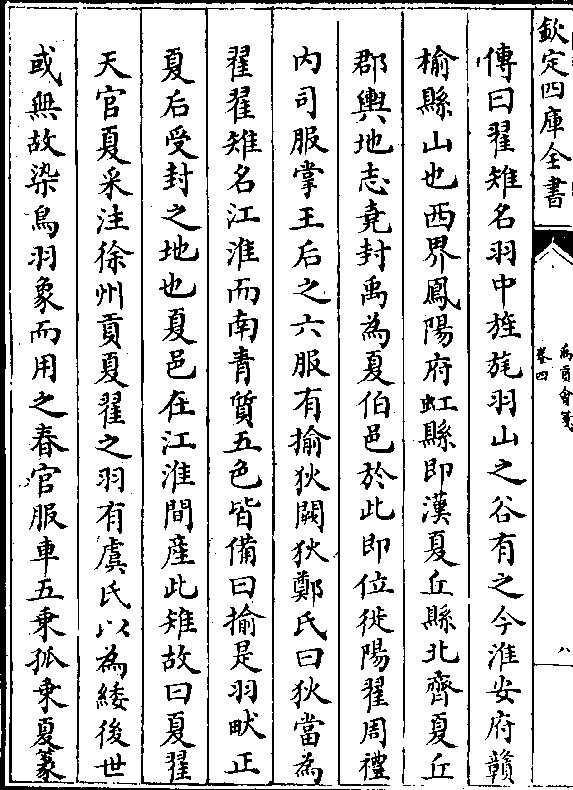 欽定四庫全書
禹貢會箋
卷四
八
傳曰翟雉名羽中旌旄羽山之谷有之今淮安府贛
榆縣山也西界鳳陽府虹縣即漢夏丘縣北齊夏丘
郡輿地志堯封禹為夏伯邑於此即位徙陽翟周禮
内司服掌王后之六服有揄狄闕狄鄭氏曰狄當為
翟翟雉名江淮而南青質五色皆備曰揄是羽畎正
夏后受封之地也夏邑在江淮間產此雉故曰夏翟
天官夏采注徐州貢夏翟之羽有虞氏以為緌後世
或無故染鳥羽象而用之春官服車五乘孤乘夏篆